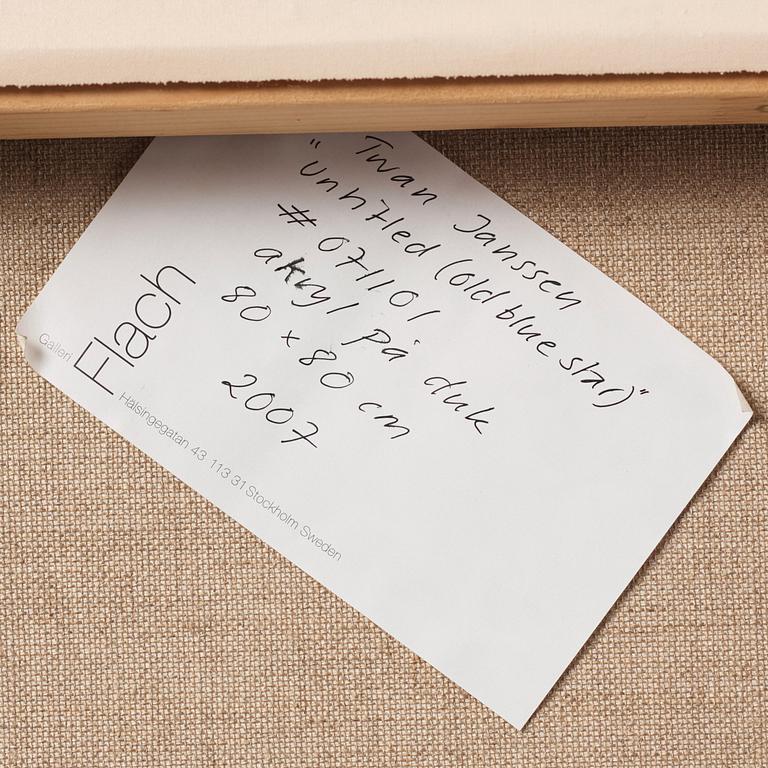 Twan Janssen
"Untitled (old blue star)"
# 071101
akryl på duk
80 x 80 cm
2007
Galleri
Flach
Hälsingegatan 43 113 31 Stockholm Sweden